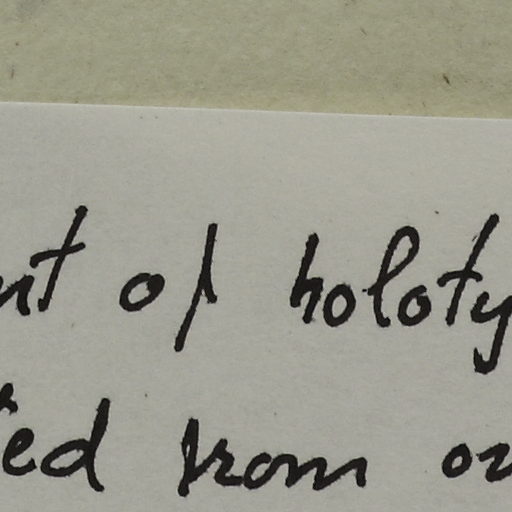 nt of holoty
ed from or